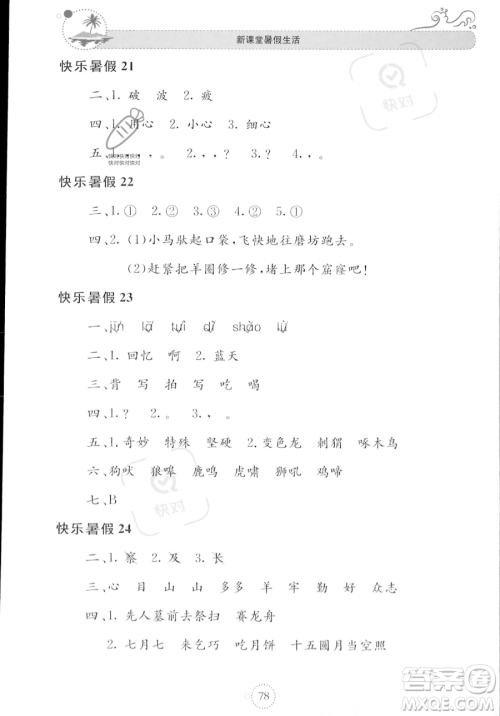 新课堂暑假生活
快乐暑假 21
二、1. 破 波 2. 疲
四、1. 用心 2. 小心 3. 细心
五、1. , 。 2. , , ? 3. , ? 4. , 。
快乐暑假 22
三、1. ① 2. ② 3. ② 4. ② 5. ①
四、2. (1)小马驮起口袋,飞快地往磨坊跑去。
(2)赶紧把羊圈修一修,堵上那个窟窿吧!
快乐暑假 23
一、
二、1. 回忆 啊 2. 蓝天
三、背 写 拍 写 吃 喝
四、1. ? 2. 。 3. , 。
五、1. 奇妙 特殊 坚硬 2. 变色龙 刺猬 啄木鸟
六、狗吠 狼嗥 鹿鸣 虎啸 狮吼 鸡啼
七、B
快乐暑假 24
二、1. 察 2. 及 3. 长
三、心 目 山 山 多 多 羊 牢 勤 好 众 志
四、1. 先人墓前去祭扫 赛龙舟
2. 七月七 来乞巧 吃月饼 十五圆月当空照
78
快对
快对
答案